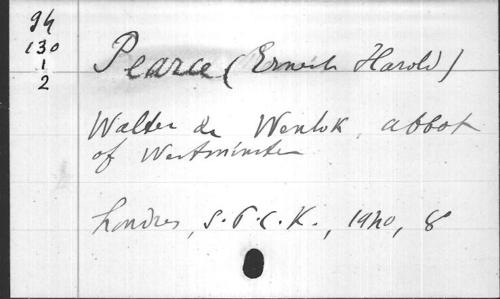 94
130
1
2
Pearce (Ernest Harold)
Walter de Wenlok, abbot
of Westminster
Londres, S.P.C.K., 1920, 8°